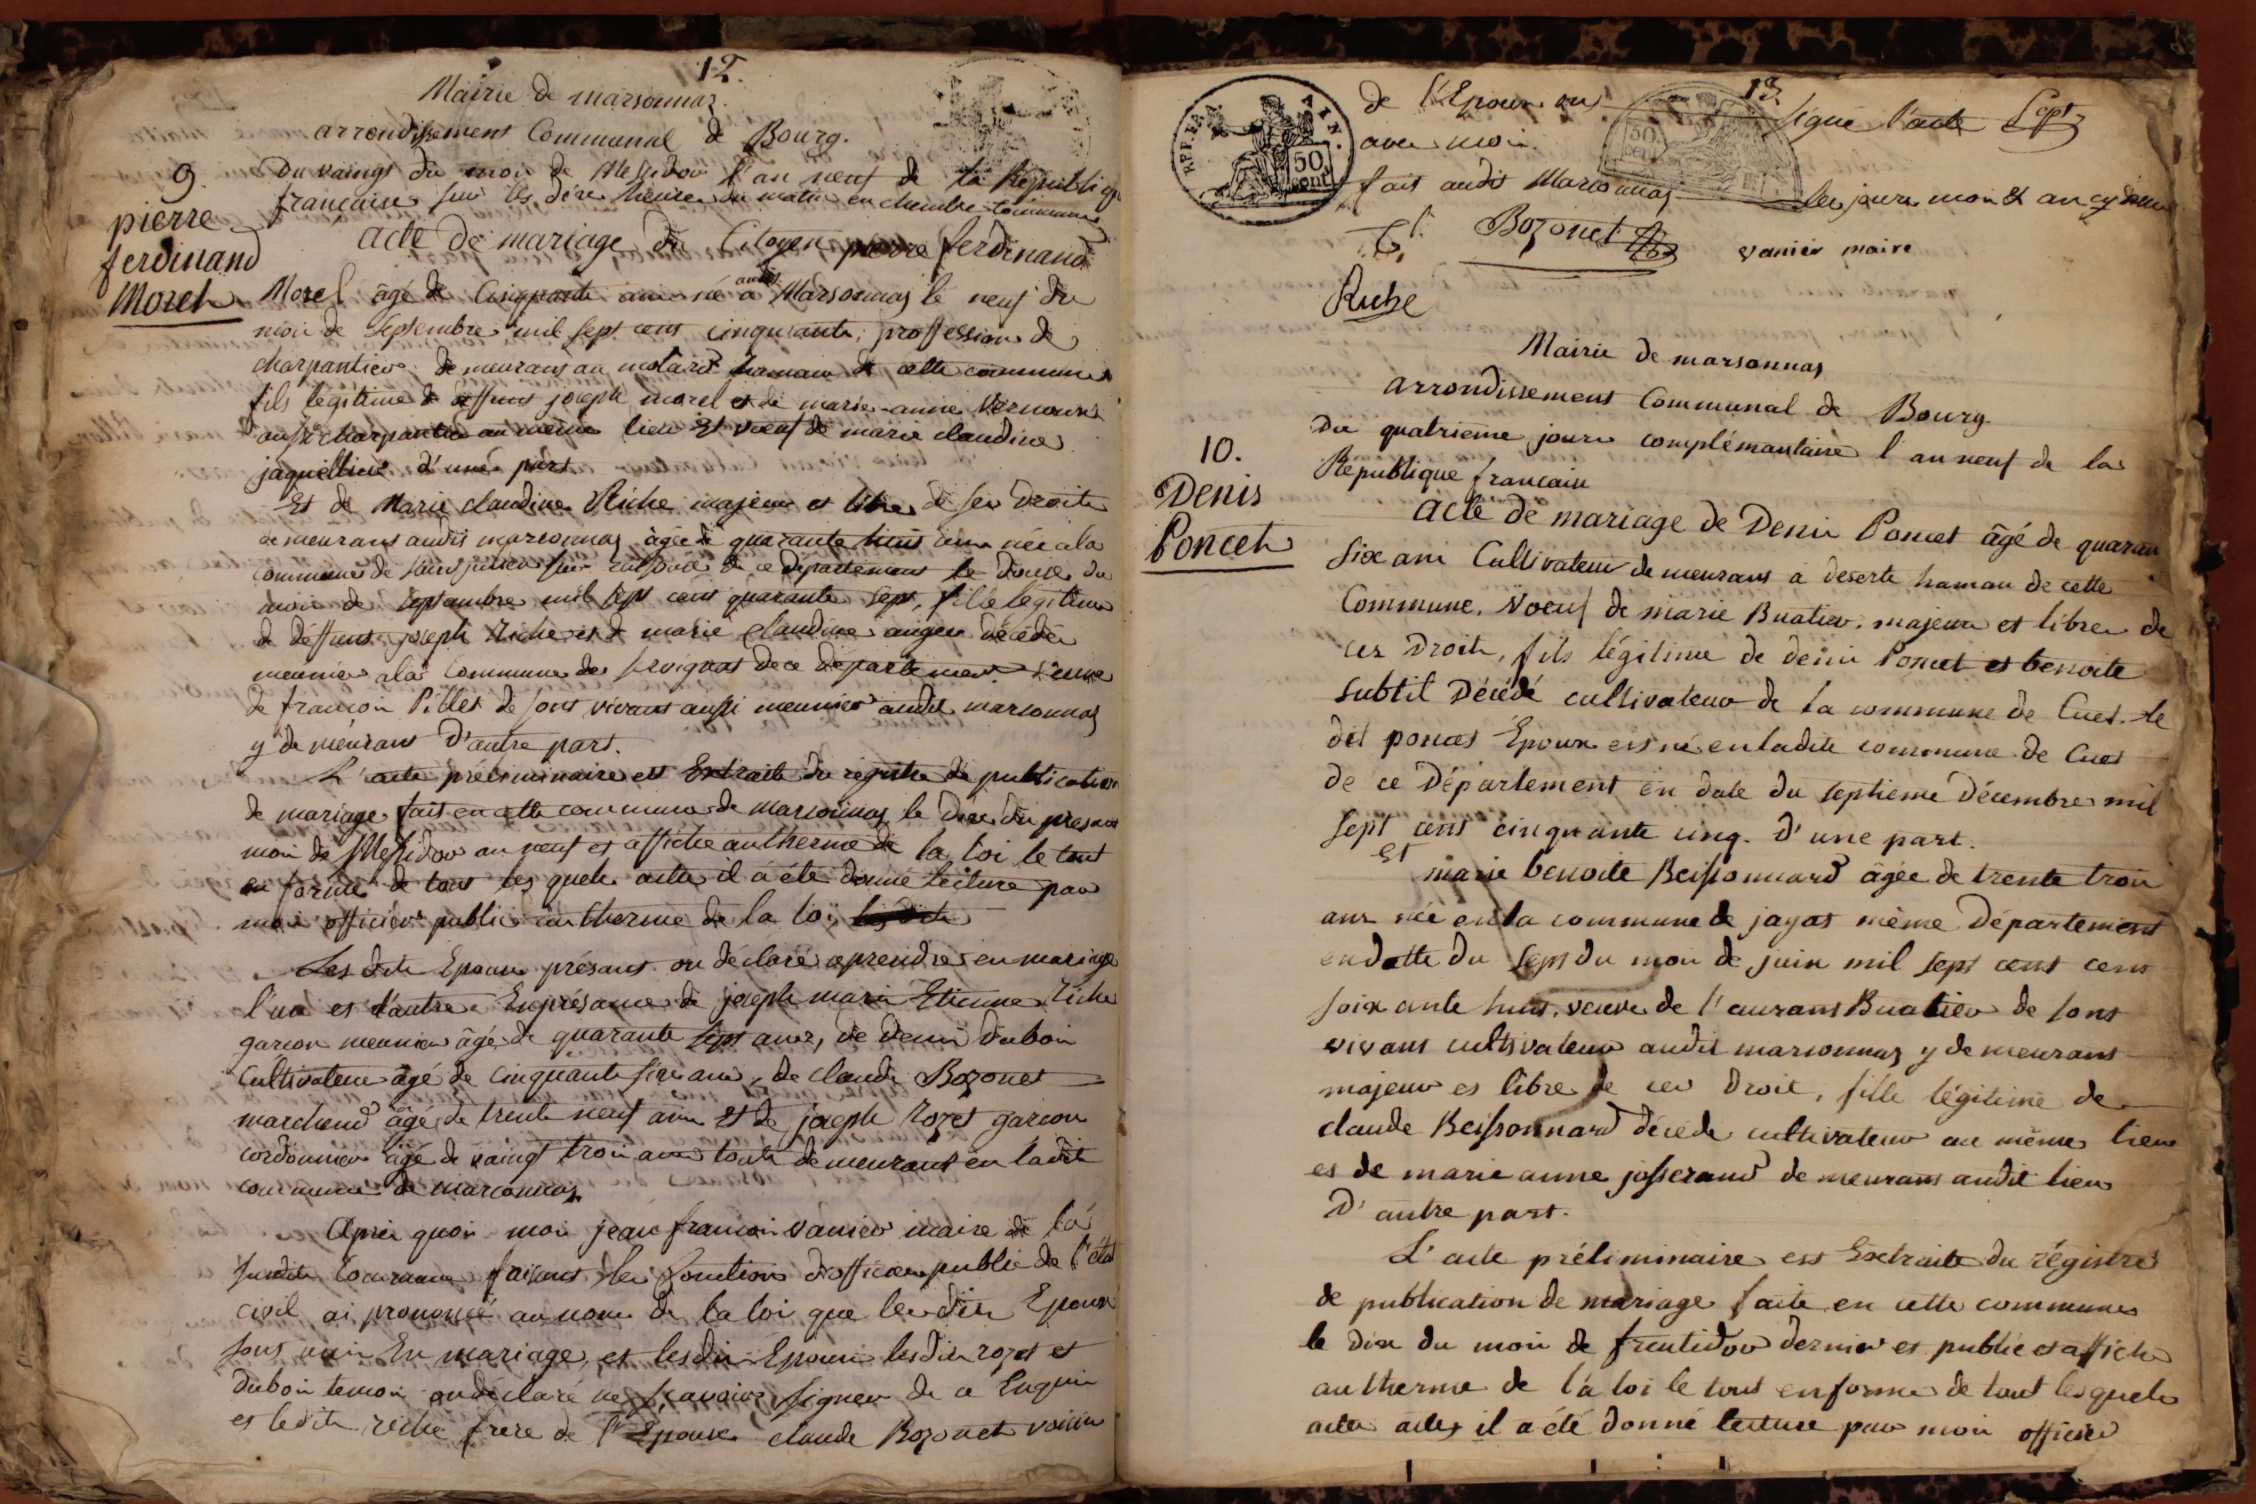 12.
Mairie de marsonnaz.
arrondissement Communal de Bourg.
9.
pierre
ferdinand
Morel
Du vaingt du moi de Messidor l'an neuf de la Republiq
française sur les dixe heure du matin en chembre commune
acte de mariage du Citoyen pierre ferdinand
Morel âgé de Cinqpante ans né a audit Marsonnaz le neuf du
moi de septembre mil sept cent cinquante, proffession de
charpantier demeurant au molard hamau de cette commune
fils legitime de deffunt joseph morel et de marie anne Vernoux
aussi charpantier au même lieu Et voeuf de marie claudine
d'une part
Et de Marie claudine Riche majeur et libre de ses Droits
demeurant audit marsonnaz âgée de quarante huit ans née a la
commune de saint julien sur de ce département le douze du
moi de septambre mil sept cent quarante sept, fille legitime
de déffunt joseph Riche et de marie claudine décédé
meunier a la commune de servignat de ce département veuve
de françoi Pillet de sont vivant aussi meunier audit marsonnaz
y demeurant D'autre part.
L'acte préliminaire est Extraite du registre de publication
de mariage fait en cette commune de marsonnaz le dixe du present
moi de Messidor an neuf et affiché au therme de la loi le tout
en forme de tous les quels actes il a été donné lecture par
moi officier public au therme de la loi
Les dits Epoux présant on déclaré aprendre en mariage
l'un et l'autre En présance de joseph marie Etienne Riche
garcon meunier âgé de quarante sept ans, de denis duboi
Cultivateur âgé de cinquante six ans, de claude Bozonet
marchand âgé de trente neuf ans Et de joseph rozet garcon
cordonnier âgé de vaingt troi ans tout demeurant en ladite
commune de marsonnaz
Aprés quoi moi jean françoi vanier maire de la
susdite Commune faisant les fonctions d'officier public de l'état
civil ai prononcé au nom de la loi que les dits Epoux
sont uni En mariage, et lesdits Epoux lesdits rozet et
duboi temoin on déclaré ne sçavoir signer de ce Enquis
et ledit riche frere de l'Epouse claude Bozonet voisin
13.
REP. FRA.
AIN.
50
cent
50
cent
de l'Epoux on signé l'acte
avec moi.
fait audit Marsonnaz les jours moi & an cy dessus
Bozonet vanier maire
Riche
Mairie de marsonnaz
arrondissement Communal de Bourg
10.
Denis
Poncet
Du quatrieme jour complémantaire l'an neuf de la
Republique francaise
acte de mariage de Denis Poncet âgé de quaran
sixe ans Cultivateur demeurant a deserte hamau de cette
Commune, Voeuf de marie Buatier, majeur et libre de
ces Droits, fils légitime de denis Poncet et benoite
subtil Décédé cultivateur de la commune de Cuet. le
dit poncet Epoux est né en ladite commune de Cuet
de ce Département en date du septieme Décembre mil
sept cent cinquante cinq. D'une part.
Et
marie benoite Beissonnard âgée de trente troi
ans née en la commune de jayat même Département
en datte du sept du moi de juin mil sept cent cent
soixante huit, veuve de l'aurant Buatier de sont
vivant cultivateur audit marsonnaz y demeurant
majeur et libre de ces Droit, fille légitime de
claude Beissonnard décédé cultivateur au même lieu
et de marie anne josserand demeurant audit lieu
D'autre part.
L'acte préliminaire est Extraite du régistre
de publication de mariage faite en cette commune
le dix du moi de fructidor dernier et publié et affiché
au therme de la loi le tout en forme de tout les quels
actes actes il a été donné lecture par moi officier